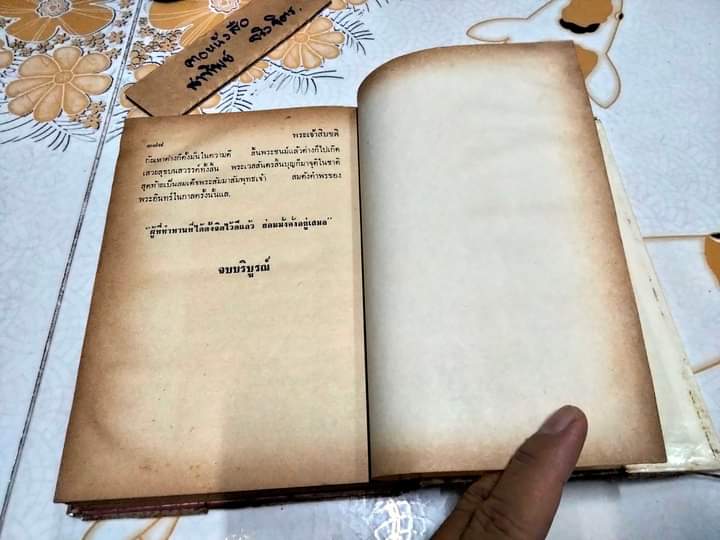 ตอบหนังสือ
พระเจ้าสิบชาติ
กัณหาต่างก็ตั้งมั่นในความดี สิ้นพระชนม์แล้วต่างก็ไปเกิด
เสวยสุขบนสวรรค์ทั้งสิ้น พระเวสสันดรสิ้นบุญก็มาจุติในชาติ
สุดท้ายเป็นสมเด็จพระสัมมาสัมพุทธเจ้า สมดังคำพรของ
พระอินทร์ในกาลครั้งนั้นแล.
"ผู้ที่ทำทานที่ได้ตั้งจิตไว้ดีแล้ว ย่อมมั่งคั่งอยู่เสมอ"
จบบริบูรณ์